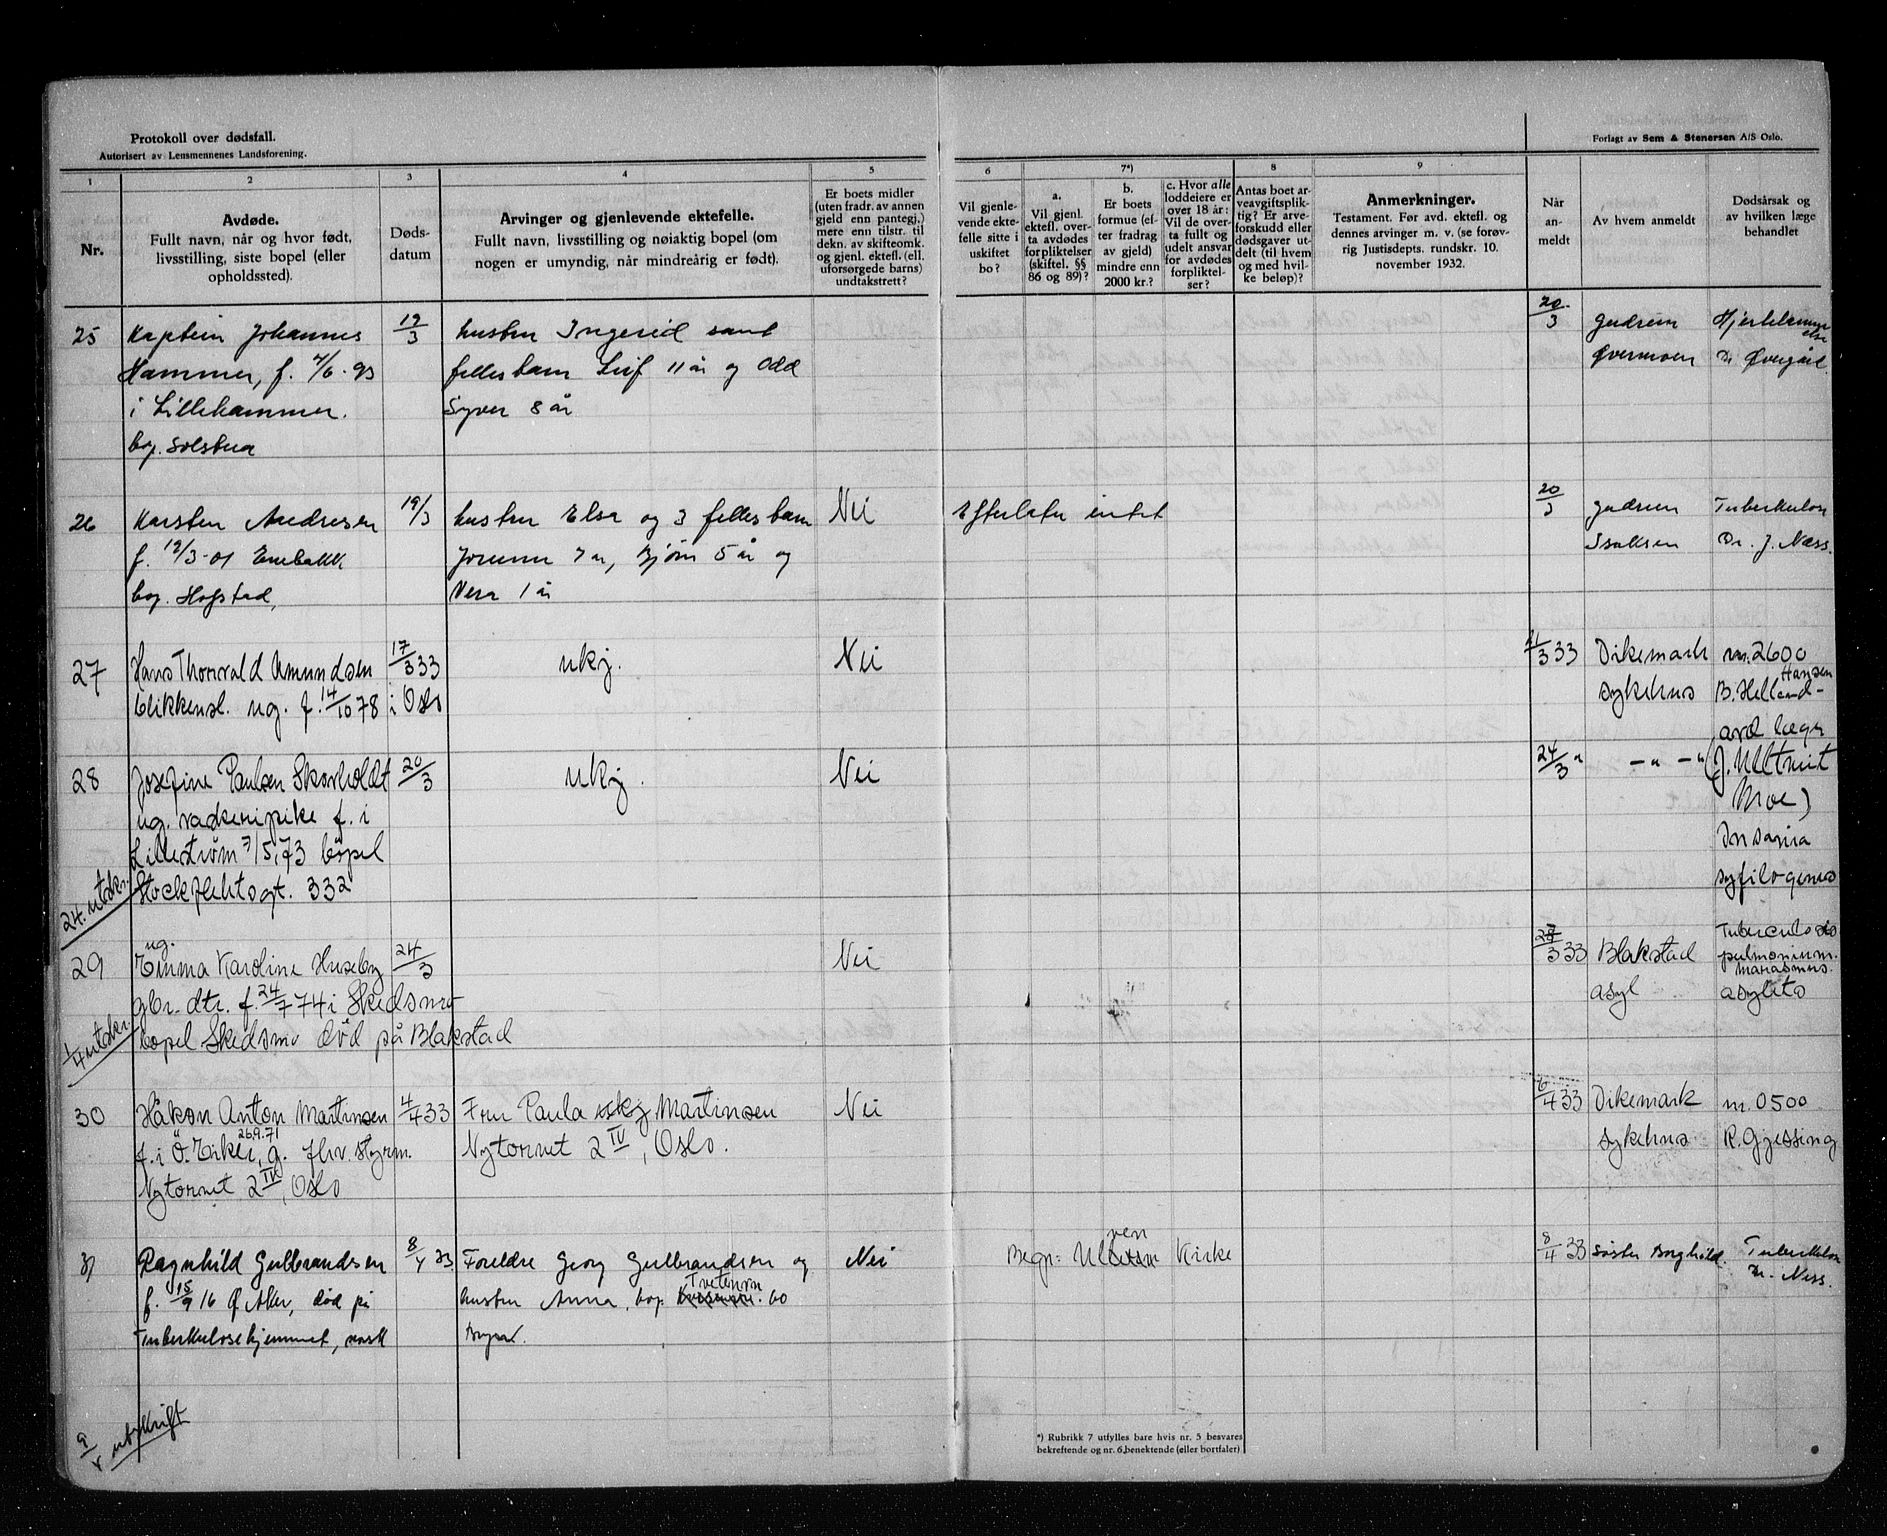 Protokoll over dødsfall.
Autorisert av Lensmennenes Landsforening.
Forlagt av Sem & Stenersen A/S Oslo.
1 2 3 4 5 6 7*) 8 9
Nr.
Avdøde.
Fullt navn, når og hvor født,
livsstilling, siste bopel (eller
opholdssted).
Døds-
datum
Arvinger og gjenlevende ektefelle.
Fullt navn, livsstilling og nøiaktig bopel (om
nogen er umyndig, når mindreårig er født).
Er boets midler
(uten fradr. av annen
gjeld enn pantegj.)
mere enn tilstr. til
dekn. av skifteomk.
og gjenl. ektefl. (ell.
uforsørgede barns)
undtakstrett?
Vil gjenle-
vende ekte-
felle sitte i
uskiftet
bo?
a.
Vil gjenl.
ektefl. over-
ta avdødes
forpliktelser
(skiftel. §§
86 og 89)?
b.
Er boets
formue (ef-
ter fradrag
av gjeld)
mindre enn
2000 kr.?
c. Hvor alle
loddeiere er
over 18 år:
Vil de over-
ta fullt og
udelt ansvar
for avdødes
forpliktel-
ser?
Antas boet ar-
veavgiftsplik-
tig? Er arve-
forskudd eller
dødsgaver ut-
delt (til hvem
og med hvil-
ke beløp)?
Anmerkninger.
Testament. Før avd. ektefl. og
dennes arvinger m. v. (se forøv-
rig Justisdepts. rundskr. 10.
november 1932.
Når
an-
meldt
Av hvem anmeldt
Dødsårsak og
av hvilken læge
behandlet
25
Kaptein Johannes
Hammer, f. 4/6-93
i Lillehammer.
bop. Solstua
19/3
hustru Ingerid samt
fellesbarn Leif 11 år og Odd
Syver 8 år
20/3
Gudrun
Øvermoen
Dr Øvergård.
26
Karsten Andresen
f. 12/3-01 Enebakk
bop. Hofstad,
19/3
hustru Elsa og 3 fellesbarn
Jorunn 7 år, Bjørn 5 år og
Vera 1 år
Nei
Efterlater intet
20/3
Gudrun
Isaksen
Tuberkulose
Dr. J. Næss.
27
Hans Thorvald Amundsen
blikkensl. ug. f. 14/10 78 i Oslo
17/3 33
ukj.
Nei
21/3 33
Dikemark
sykehus
nr. 2600
B. Helland-Hansen
avd læge
28
Josefine Paulsen Skarholdt
ug. vaskeripike f. i
Lillestrøm 7/5, 73 bopel
Stockflehtsgt. 332
20/3
ukj.
Nei
24/3 "
– " – "
(J. Ultveit
Moe)
Insania
syfilogenes
24. utskr.
29
ug.
Emma Karoline Huseby
gbr. dtr. f. 24/7 74 i Skedsmo
bopel Skedsmo død på Blakstad
24/3
Nei
3 33
Blakstad
asyl
Tuberculosis
pulmonum.
marasmus.
asylets
1/4 utskr.
30
Håkon Anton Martinsen
f. i Ö. Eiker, 26.9.71 g. fhv. styrm.
Nytorvet 2 IV, Oslo
4/4 33
Fru Paula Martinsen
Nytorvet 2 IV, Oslo.
Nei
6/4 33
Dikemark
sykehus
nr. 0500
R. Gjessing
31
Ragnhild Gulbrandsen
f. 15/9 16 Ø Aker, død på
Tuberkulosehjemmet, Vask
8/4 33.
Foreldre Georg Gulbrandsen og
hustru Anna, bop. Tveteron. bo
Nei
Begr: Kirke
8/4 33
Søster Borghild.
Tuberkulose
Dr. Ness.
9/4 utskrift
*) Rubrikk 7 utfylles bare hvis nr. 5 besvares
bekreftende og nr. 6 benektende (eller bortfaler)